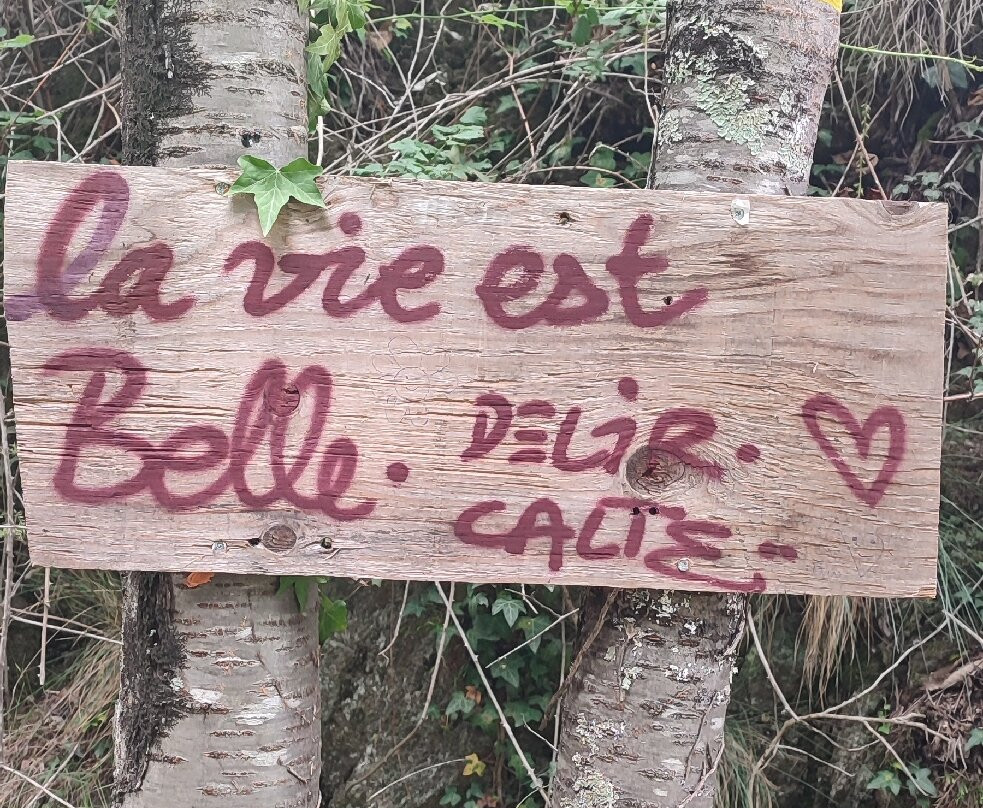 la vie est
Belle. DELiR. ♡
CALTE.